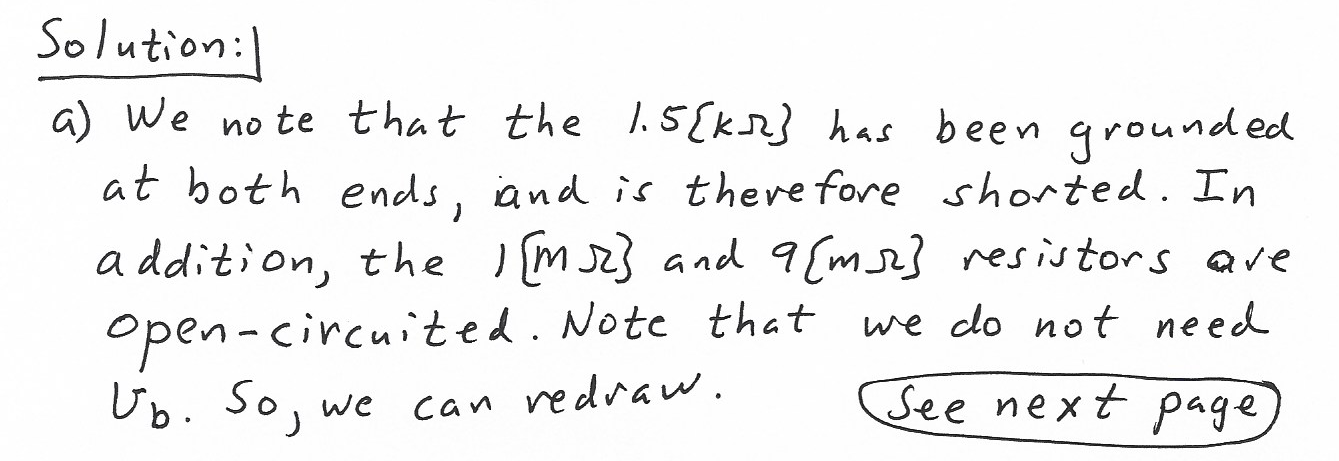 Solution:
a) We note that the 1.5[kΩ] has been grounded
at both ends, and is therefore shorted. In
addition, the 1[mΩ] and 9[mΩ] resistors are
open-circuited. Note that we do not need
v_b. So, we can redraw.
See next page